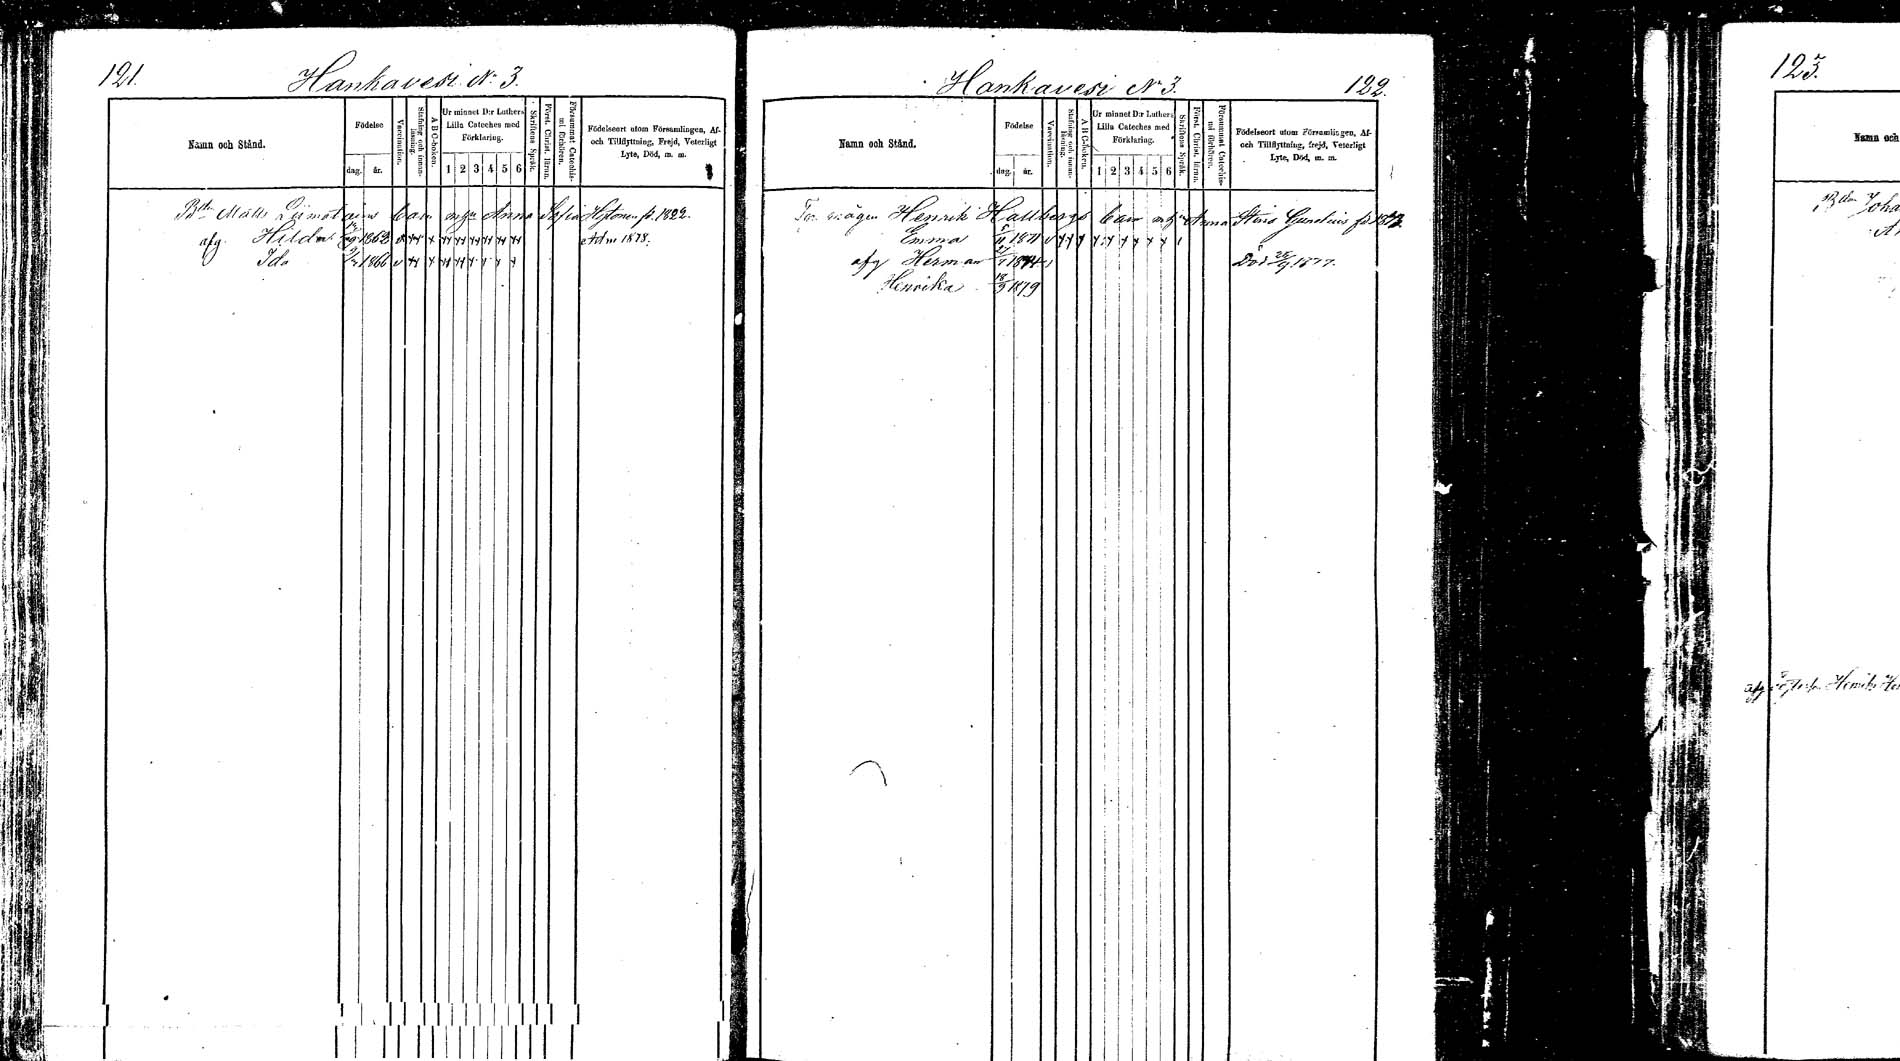 121.
Hankavesi N:o 3.
Namn och Stånd.
Födelse
dag. år.
Vaccination.
Stafning och innan-läsning.
A B C-boken.
Ur minnet D:r Luthers Lilla Cateches med Förklaring.
1 2 3 4 5 6
Skriftens Språk.
Först. Christ. läran.
Försummat Catechis-mi förhören.
Födelseort utom Församlingen, Af- och Tillflyttning, Frejd, Veterligt Lyte, Död, m. m.
Matts Liimatains barn m hu Anna Sofia fd. 1822.
afg. Hilda 1862 Adm 1878.
Ida 1866
Hankavesi N:o 3.
122.
Namn och Stånd.
Födelse
dag. år.
Vaccination.
Stafning och innan-läsning.
A B C-boken.
Ur minnet D:r Luthers Lilla Cateches med Förklaring.
1 2 3 4 5 6
Skriftens Språk.
Först. Christ. läran.
Försummat Catechis-mi förhören.
Födelseort utom Församlingen, Af- och Tillflyttning, frejd, Veterligt Lyte, Död, m. m.
Henrik Hallbergs barn Anna
Emma 1871
afg Herman Död 1877.
Henrika 18/9 1879
123.
Namn och
Joha
Henrik